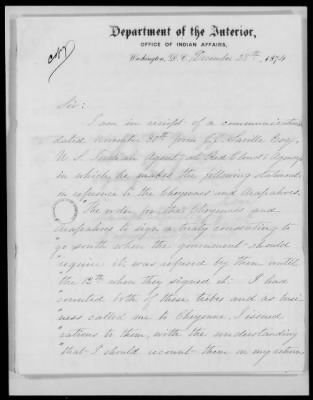 Copy
Department of the Interior,
OFFICE OF INDIAN AFFAIRS,
Washington, D. C. December 28th, 1874
Sir:
I am in receipt of a communication
dated November 30th from J. J. Saville Esq.,
U. S. Indian Agent, at Red Cloud Agency
in which he makes the following statement
in reference to the Cheyennes and Arapahoes.
"The order for the Cheyennes and
Arapahoes to sign a treaty consenting to
go south when the government should
"require it was refused by them until
the 12th when they signed it. I had
"counted both of these tribes and as busi
"ness called me to Cheyenne, I issued
"rations to them, with the understanding
"that I should recount them on my return